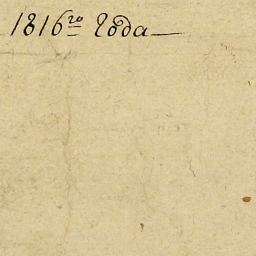 1816го Года